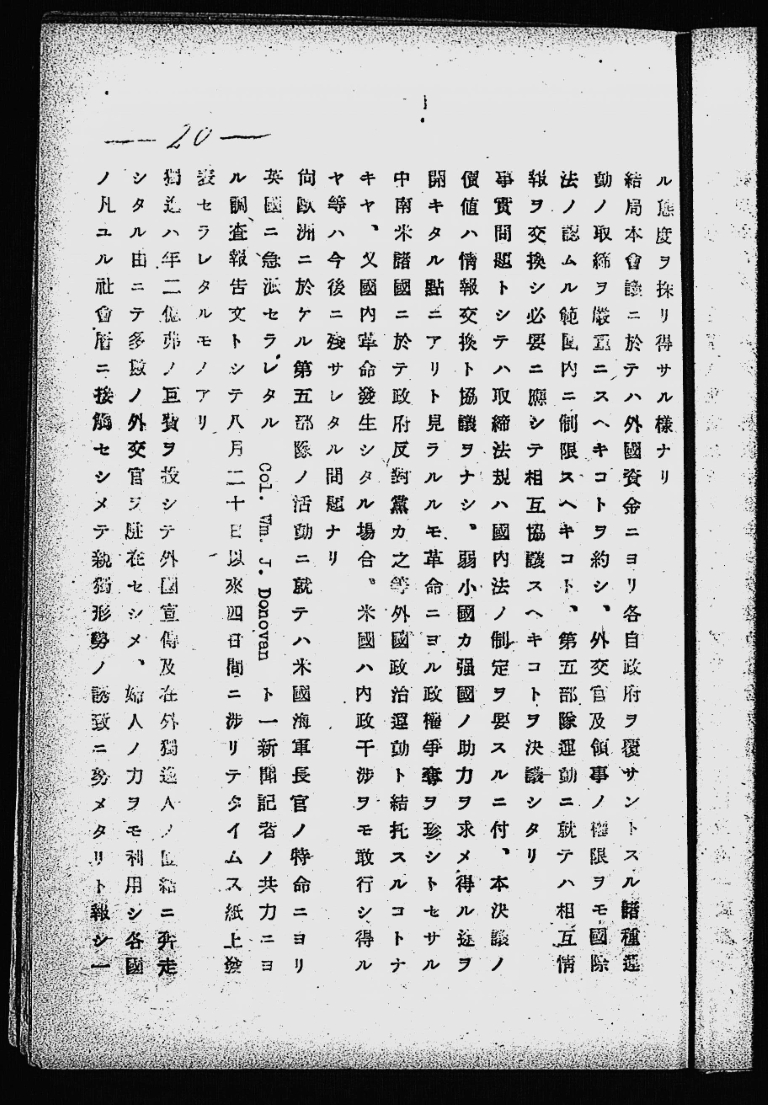 — 20 —
ル態度ヲ採リ得サル樣ナリ
結局本會議ニ於テハ外國資金ニヨリ各自政府ヲ覆サントスル諸種運
動ノ取締ヲ嚴重ニスヘキコトヲ約シ、外交官及領事ノ權限ヲモ國際
法ノ認ムル範圍内ニ制限スヘキコト、第五部隊運動ニ就テハ相互情
報ヲ交換シ必要ニ應シテ相互協議スヘキコトヲ決議シタリ
事實問題トシテハ取締法規ハ國内法ノ制定ヲ要スルニ付、本決議ノ
價値ハ情報交換ト協議ヲナシ、弱小國カ强國ノ助力ヲ求メ得ル途ヲ
開キタル點ニアリト見ラルルモ革命ニヨル政權爭奪ヲ珍シトセサル
中南米諸國ニ於テ政府反對黨カ之等外國政治運動ト結托スルコトナ
キヤ、又國内革命發生シタル場合。米國ハ内政干涉ヲモ敢行シ得ル
ヤ等ハ今後ニ殘サレタル問題ナリ
尙歐洲ニ於ケル第五部隊ノ活動ニ就テハ米國海軍長官ノ特命ニヨリ
英國ニ急派セラレタル Col. Wm. J. Donovan ト一新聞記者ノ共力ニヨ
ル調査報告文トシテ八月二十日以來四日間ニ涉リテタイムス紙上發
表セラレタルモノアリ
獨逸ハ年二億弗ノ巨費ヲ投シテ外國宣傳及在外獨逸人ノ團結ニ奔走
シタル由ニテ多數ノ外交官ヲ駐在セシメ、婦人ノ力ヲモ利用シ各國
ノ凡ユル社會層ニ接觸セシメテ親獨形勢ノ誘致ニ努メタリト報シ一